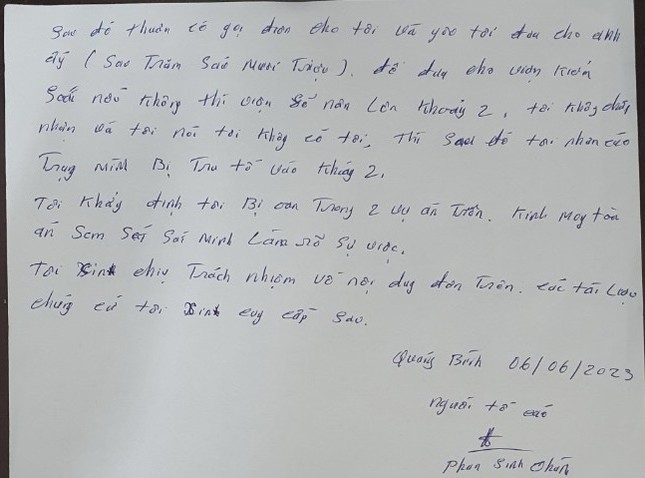 Sao đó thuân có gọi điện cho tôi và yêo tôi đưa cho anh
ấy (Sao Trăm Sáo Mươi Triệu). để đưa cho viện Kiểm
Soái nếu không thì viện sẽ nân Lên Khoảy 2, tôi không chấp
nhận và tôi nói tôi không có tội, Thì Sao đó tôi nhận cáo
Trạng mình Bị Truy tố vào Khảng 2.
Tôi Khảy định tôi Bị oan Trong 2 vụ án Trên. Kính Mong tòa
án Sem Sét Sai Minh Làm rõ Sự việc.
Tôi Xin chịu Trách nhiệm về nội dug đơn Trên. các tài Liệu
chứg cứ tôi Xin cug cấp sau.
Quảng Bình 06/06/2023
Người tố cáo
Phan Sinh